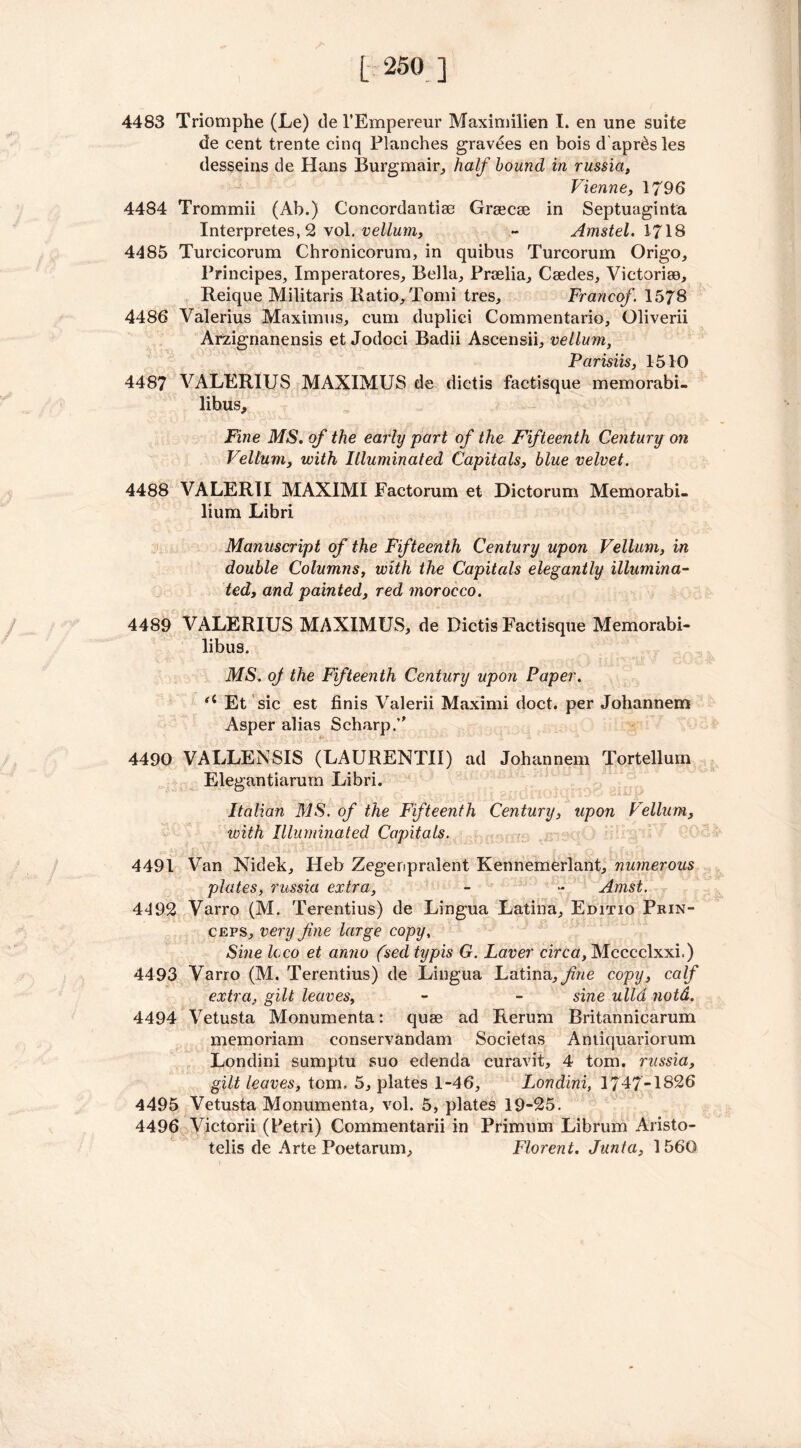 [ 250 ]
4483 Triomphe (Le) de l'Empereur Maximilien I. en une suite
de cent trente cinq Planches gravées en bois d'après les
desseins de Hans Burgmair, half bound in russia,
Vienne, 1796
4484 Trommii (Ab.) Concordantiæ Græcæ in Septuaginta
Interpretes, 2 vol. vellum, - Amstel. 1718
4485 Turcicorum Chronicorum, in quibus Turcorum Origo,
Principes, Imperatores, Bella, Prælia, Cædes, Victoriæ,
Reique Militaris Ratio, Tomi tres, Francof. 1578
4486 Valerius Maximus, cum duplici Commentario, Oliverii
Arzignanensis et Jodoci Badii Ascensii, vellum,
Parisiis, 1510
4487 VALERIUS MAXIMUS de dictis factisque memorabi-
libus,
Fine MS. of the early part of the Fifteenth Century on
Vellum, with Illuminated Capitals, blue velvet.
4488 VALERII MAXIMI Factorum et Dictorum Memorabi-
lium Libri
Manuscript of the Fifteenth Century upon Vellum, in
double Columns, with the Capitals elegantly illumina-
ted, and painted, red morocco.
4489 VALERIUS MAXIMUS, de Dictis Factisque Memorabi-
libus.
MS. of the Fifteenth Century upon Paper.
"Et sic est finis Valerii Maximi doct. per Johannem
Asper alias Scharp."
4490 VALLENSIS (LAURENTII) ad Johannem Tortellum
Elegantiarum Libri.
Italian MS. of the Fifteenth Century, upon Vellum,
with Illuminated Capitals.
4491 Van Nidek, Heb Zegenpralent Kennemerlant, numerous
plates, russia extra, - - Amst.
4492 Varro (M. Terentius) de Lingua Latina, EDITIO PRIN-
CEPS, very fine large copy,
Sine loco et anno (sed typis G. Laver circa, Mcccclxxi.)
4493 Varro (M. Terentius) de Lingua Latina, fine copy, calf
extra, gilt leaves, - - sine ullâ notâ.
4494 Vetusta Monumenta: quæ ad Rerum Britannicarum
memoriam conservandam Societas Antiquariorum
Londini sumptu suo edenda curavit, 4 tom. russia,
gilt leaves, tom. 5, plates 1-46, Londini, 1747-1826
4495 Vetusta Monumenta, vol. 5, plates 19-25.
4496 Victorii (Petri) Commentarii in Primum Librum Aristo-
telis de Arte Poetarum, Florent. Junta, 1560